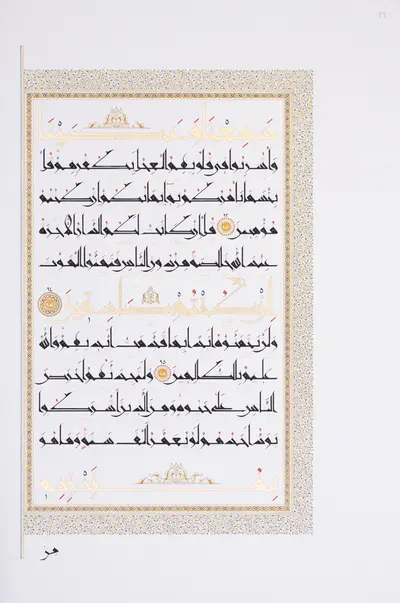 سمعنا وعصينا
وأشربوا في قلوبهم العجل بكفرهم قل
بئسما يأمركم به إيمانكم إن كنتم
مؤمنين قل إن كانت لكم الدار الآخرة
عند الله خالصة من دون الناس فتمنوا الموت
إن كنتم صادقين
ولن يتمنوه أبدا بما قدمت أيديهم والله
عليم بالظالمين ولتجدنهم أحرص
الناس على حياة ومن الذين أشركوا
يود أحدهم لو يعمر ألف سنة وما هو
بمزحزحه
من